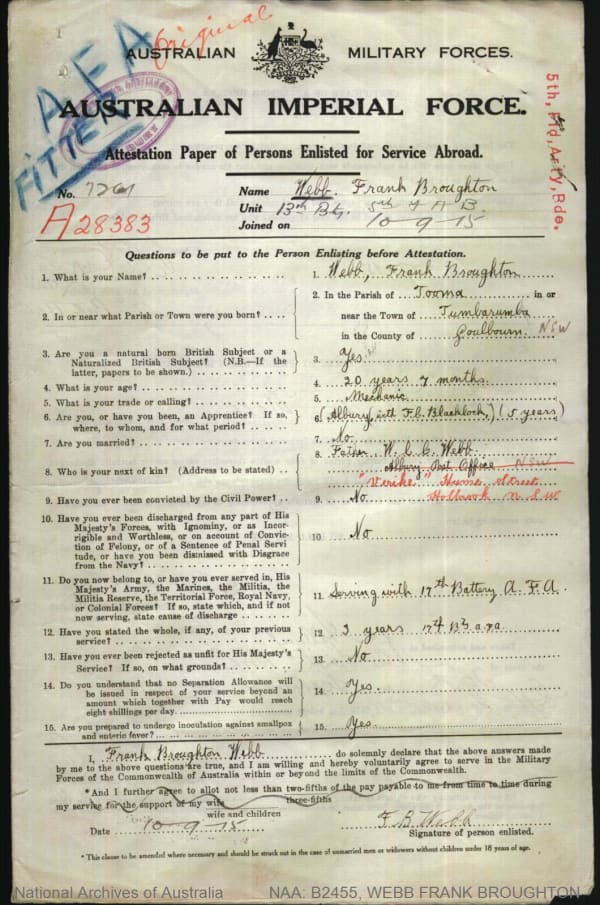 Original
A F A
FITTER
AUSTRALIAN MILITARY FORCES.
AUSTRALIAN IMPERIAL FORCE.
5th, Fld, Arty, Bde.
Attestation Paper of Persons Enlisted for Service Abroad.
No. 7261 Name Webb. Frank Broughton
A28383 Unit 13th Bty. 5th F A B.
Joined on 10-9-15
Questions to be put to the Person Enlisting before Attestation.
1. What is your Name?
1. Webb, Frank Broughton
2. In or near what Parish or Town were you born?
2. In the Parish of Tooma in or
near the Town of Tumbarumba
in the County of Goulbourn. NSW
3. Are you a natural born British Subject or a
Naturalized British Subject? (N.B.—If the
latter, papers to be shown.)
3. Yes.
4. What is your age?
4. 20 years 7 months.
5. What is your trade or calling?
5. Mechanic
6. Are you, or have you been, an Apprentice? If so,
where, to whom, and for what period?
6. Albury, with F.C. Blacklock,) (5 years)
7. Are you married?
7. No.
8. Who is your next of kin? (Address to be stated)
8. Father W. C. C. Webb.
Albury Post Office NSW
Hume Street
Holbrook N.S.W
9. Have you ever been convicted by the Civil Power?
9. No
10. Have you ever been discharged from any part of His
Majesty's Forces, with Ignominy, or as Incor-
rigible and Worthless, or on account of Convic-
tion of Felony, or of a Sentence of Penal Servi
tude, or have you been dismissed with Disgrace
from the Navy?
10 No
11. Do you now belong to, or have you ever served in, His
Majesty's Army, the Marines, the Militia, the
Militia Reserve, the Territorial Force, Royal Navy,
or Colonial Forces? If so, state which, and if not
now serving, state cause of discharge
11. Serving with 17th Battery A.F.A.
12. Have you stated the whole, if any, of your previous
service?
12. 3 years 17th Bty A.F.A.
13. Have you ever been rejected as unfit for His Majesty's
Service? If so, on what grounds?
13. No
14. Do you understand that no Separation Allowance will
be issued in respect of your service beyond an
amount which together with Pay would reach
eight shillings per day.
14. Yes.
15. Are you prepared to undergo inoculation against smallpox
and enteric fever?
15. Yes
I, Frank Broughton Webb do solemnly declare that the above answers made
by me to the above questions are true, and I am willing and hereby voluntarily agree to serve in the Military
Forces of the Commonwealth of Australia within or beyond the limits of the Commonwealth.
* And I further agree to allot not less than two-fifths of the pay payable to me from time to time during
three-fifths
my service for the support of my wife
wife and children
Date 10-9-15 F. B. Webb
Signature of person enlisted.
* This clause to be amended where necessary and should be struck out in the case of unmarried men or widowers without children under 18 years of age.
National Archives of Australia NAA: B2455, WEBB FRANK BROUGHTON